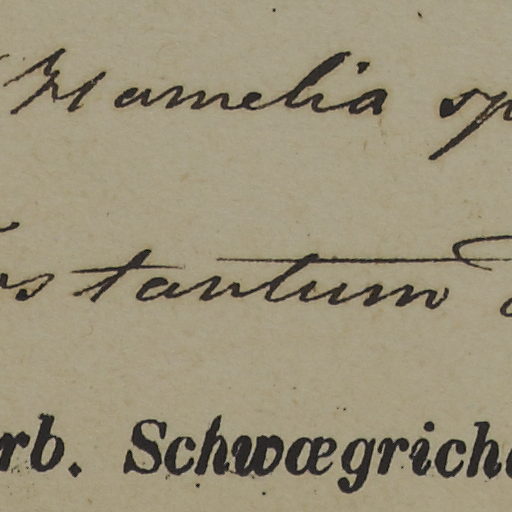 Hamelia sp
os tantum
rb. Schwægrich